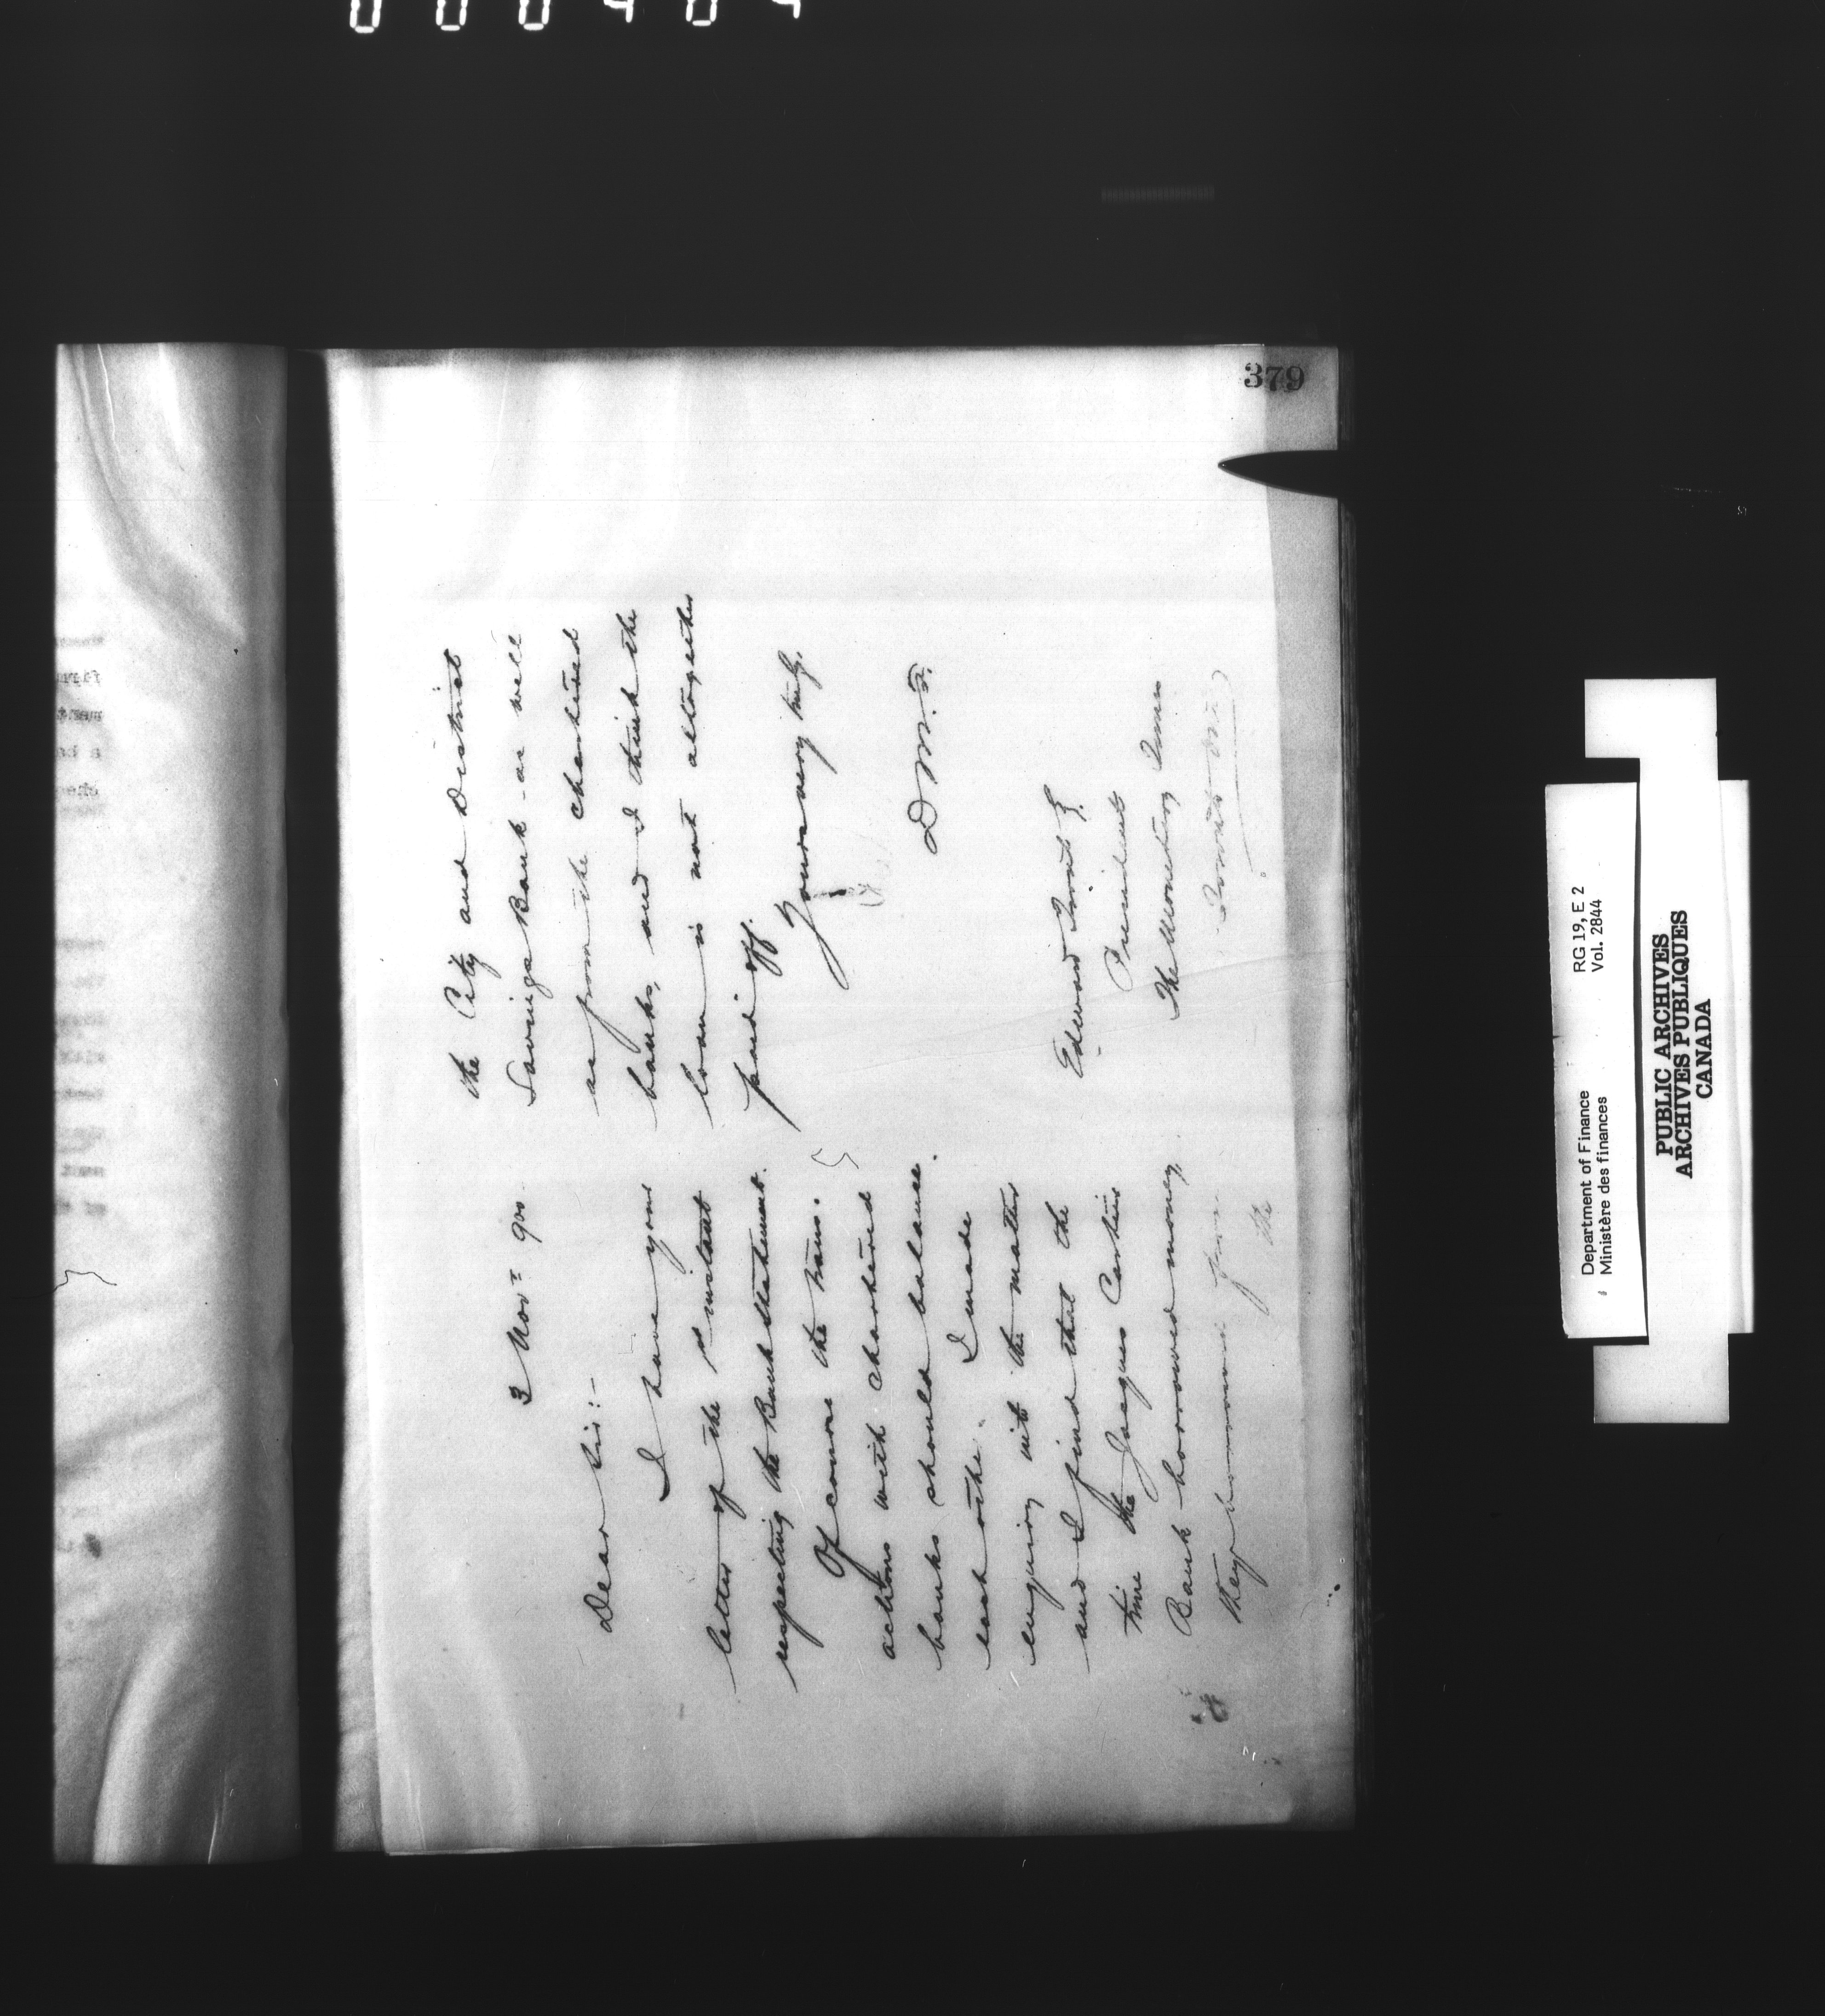 379
3 Nov= 900
Dear Sir:-
I have your
letter of the 1st instant
respecting the Bank Statement.
Of course the trans-
actions with chartered
banks should balance
each other. I made
enquiry into the matter
and I find that the
time the Jacques Cartier
Bank borrowed money,
they borrowed from
the
the City and District
Savings Bank - as well
as from the chartered
banks, and I think the
loan is not altogether
paid off.
Yours very truly,
D M. F.
Edward Trout E.
President
The Monetary Times
Toronto Ont
Department of Finance RG 19, E 2
Ministère des finances Vol. 2844
PUBLIC ARCHIVES
ARCHIVES PUBLIQUES
CANADA